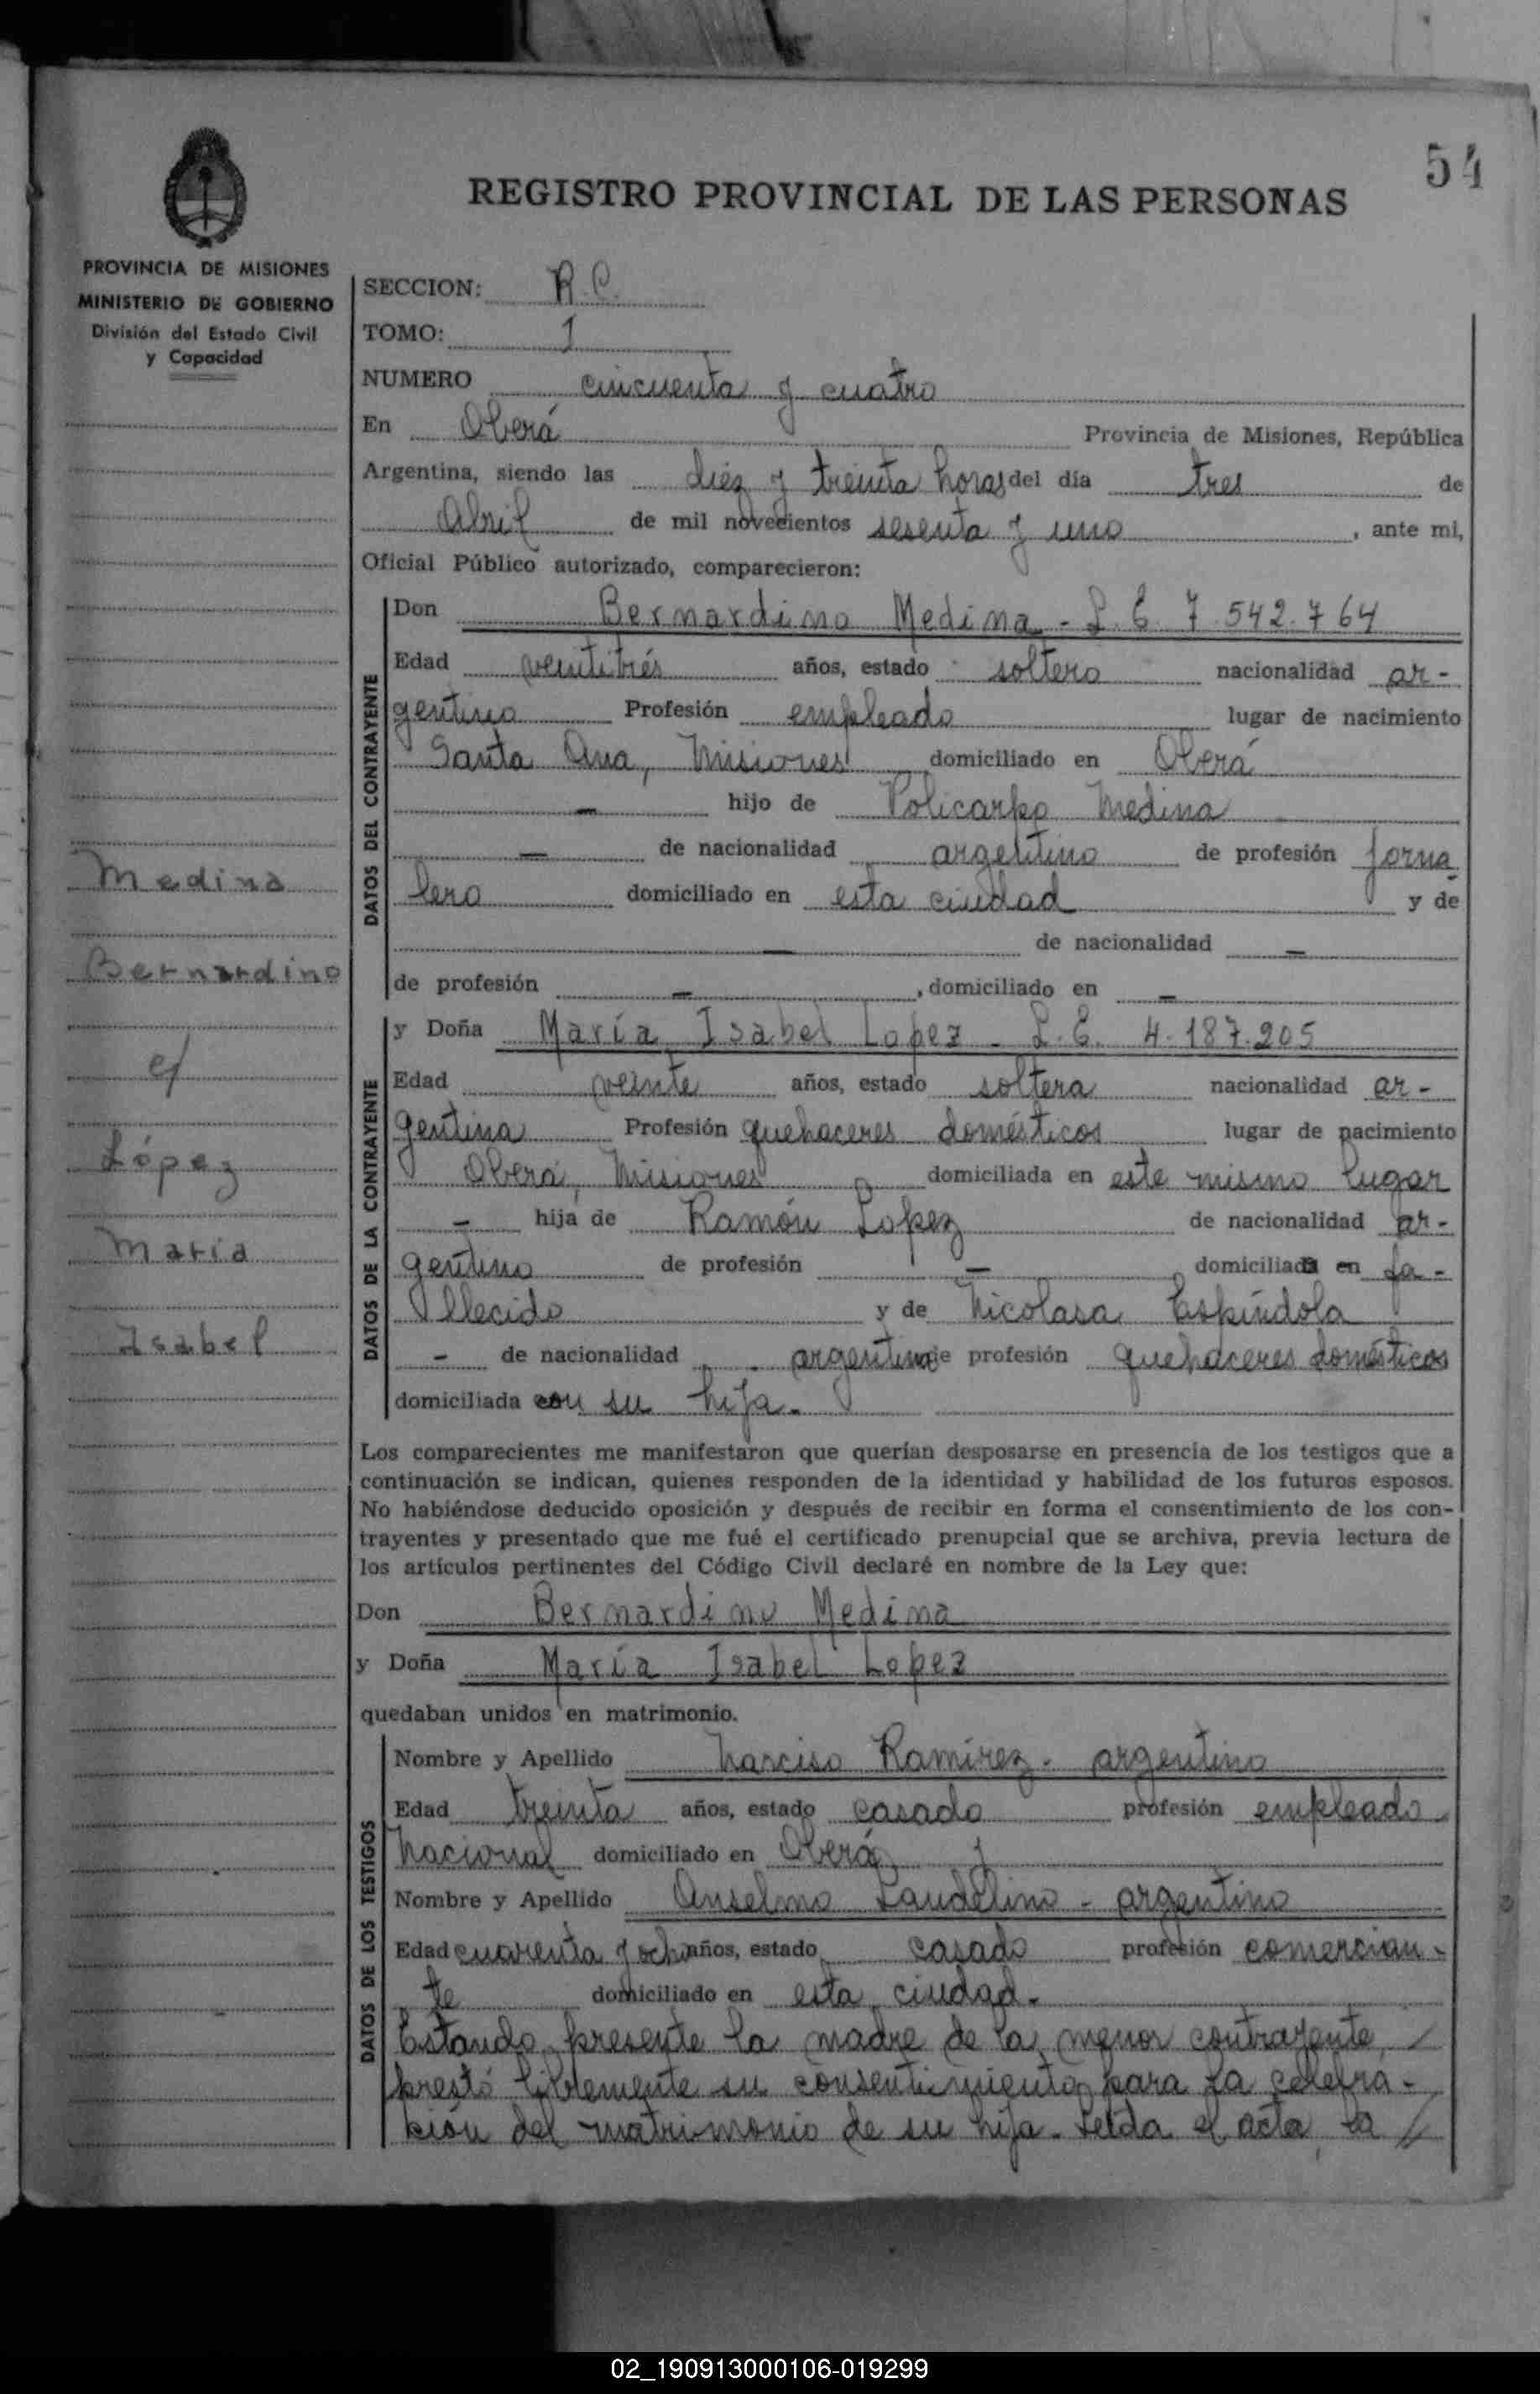 54
REGISTRO PROVINCIAL DE LAS PERSONAS
PROVINCIA DE MISIONES
MINISTERIO DE GOBIERNO
División del Estado Civil
y Capacidad
SECCION: R.C.
TOMO: 1
NUMERO cincuenta y cuatro
En Oberá Provincia de Misiones, República
Argentina, siendo las diez y treinta horas del día tres de
Abril de mil novecientos sesenta y uno, ante mi,
Oficial Público autorizado, comparecieron:
DATOS DEL CONTRAYENTE
Don Bernardino Medina - L.E. 7.542.764
Edad veintitrés años, estado soltero nacionalidad ar-
gentino Profesión empleado lugar de nacimiento
Santa Ana, Misiones domiciliado en Oberá
- hijo de Policarpo Medina
- de nacionalidad argentino de profesión jorna
lero domiciliado en esta ciudad y de
- de nacionalidad -
de profesión -, domiciliado en -
Medina
Bernardino
c/
López
María
Isabel
DATOS DE LA CONTRAYENTE
y Doña María Isabel Lopez - L.E. 4.187.205
Edad veinte años, estado soltera nacionalidad ar-
gentina Profesión quehaceres domésticos lugar de nacimiento
Oberá, Misiones domiciliada en este mismo lugar
- hija de Ramón Lopez de nacionalidad ar-
gentino de profesión - domiciliada en fa-
llecido y de Nicolasa Espíndola
- de nacionalidad argentina de profesión quehaceres domésticos
domiciliada con su hija.
Los comparecientes me manifestaron que querían desposarse en presencia de los testigos que a
continuación se indican, quienes responden de la identidad y habilidad de los futuros esposos.
No habiéndose deducido oposición y después de recibir en forma el consentimiento de los con-
trayentes y presentado que me fué el certificado prenupcial que se archiva, previa lectura de
los artículos pertinentes del Código Civil declaré en nombre de la Ley que:
Don Bernardino Medina
y Doña María Isabel Lopez
quedaban unidos en matrimonio.
DATOS DE LOS TESTIGOS
Nombre y Apellido Narciso Ramírez - argentino
Edad treinta años, estado casado profesión empleado
nacional domiciliado en Oberá y
Nombre y Apellido Anselmo Laudelino - argentino
Edad cuarenta y ocho años, estado casado profesión comercian-
te domiciliado en esta ciudad.
Estando presente la madre de la menor contrayente,
prestó libremente su consentimiento para la celebra-
ción del matrimonio de su hija. Leída el acta, la
02_190913000106-019299